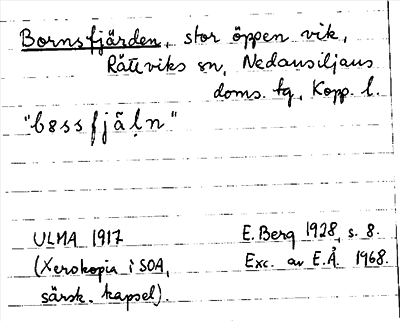 Bornsfjärden, stor öppen vik,
Rättviks sn, Nedansiljans
doms. tg, Kopp. l.
"bossfjäḷn"
ULMA 1917
(Xerokopia i SOA,
särsk. kapsel).
E. Berg 1928, s. 8.
Exc. av E.Å. 1968.